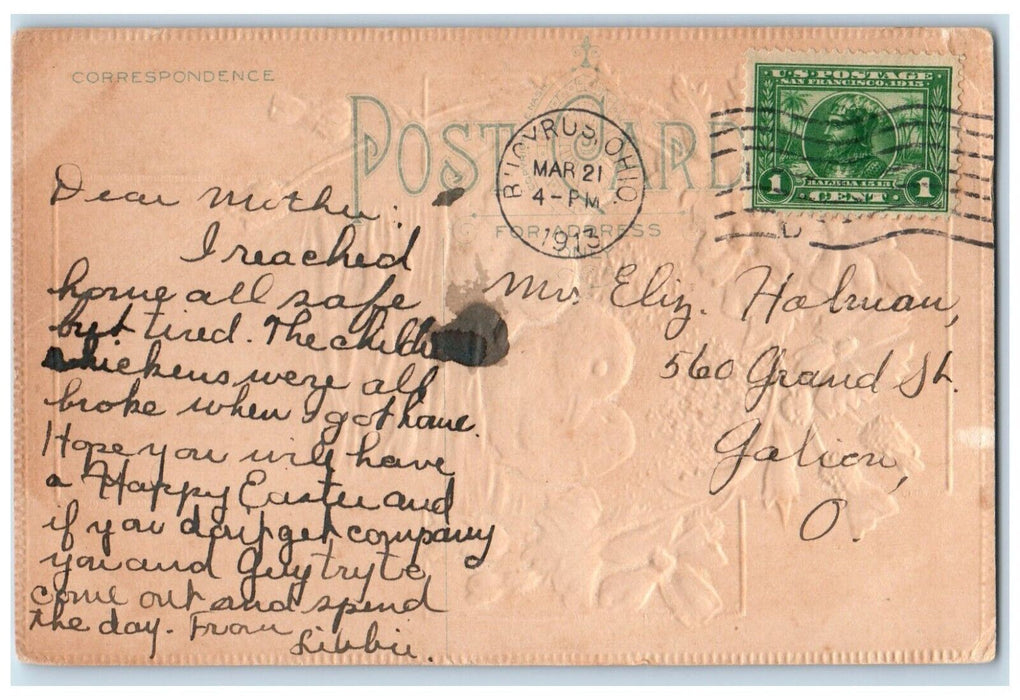 CORRESPONDENCE
POST CARD
FOR ADDRESS
BUCYRUS, OHIO.
MAR 21
4-PM
1913
U.S. POSTAGE
SAN FRANCISCO, 1915
BALBOA 1513
1 CENT 1
Dear Mother:
I reached
home all safe
but tired. The
chickens were all
broke when I got home.
Hope you will have
a Happy Easter and
if you don't get company
you and Guy try to
come out and spend
the day. From
Libbie.
Mrs. Eliz. Holman,
560 Grand St.
Galion,
O.